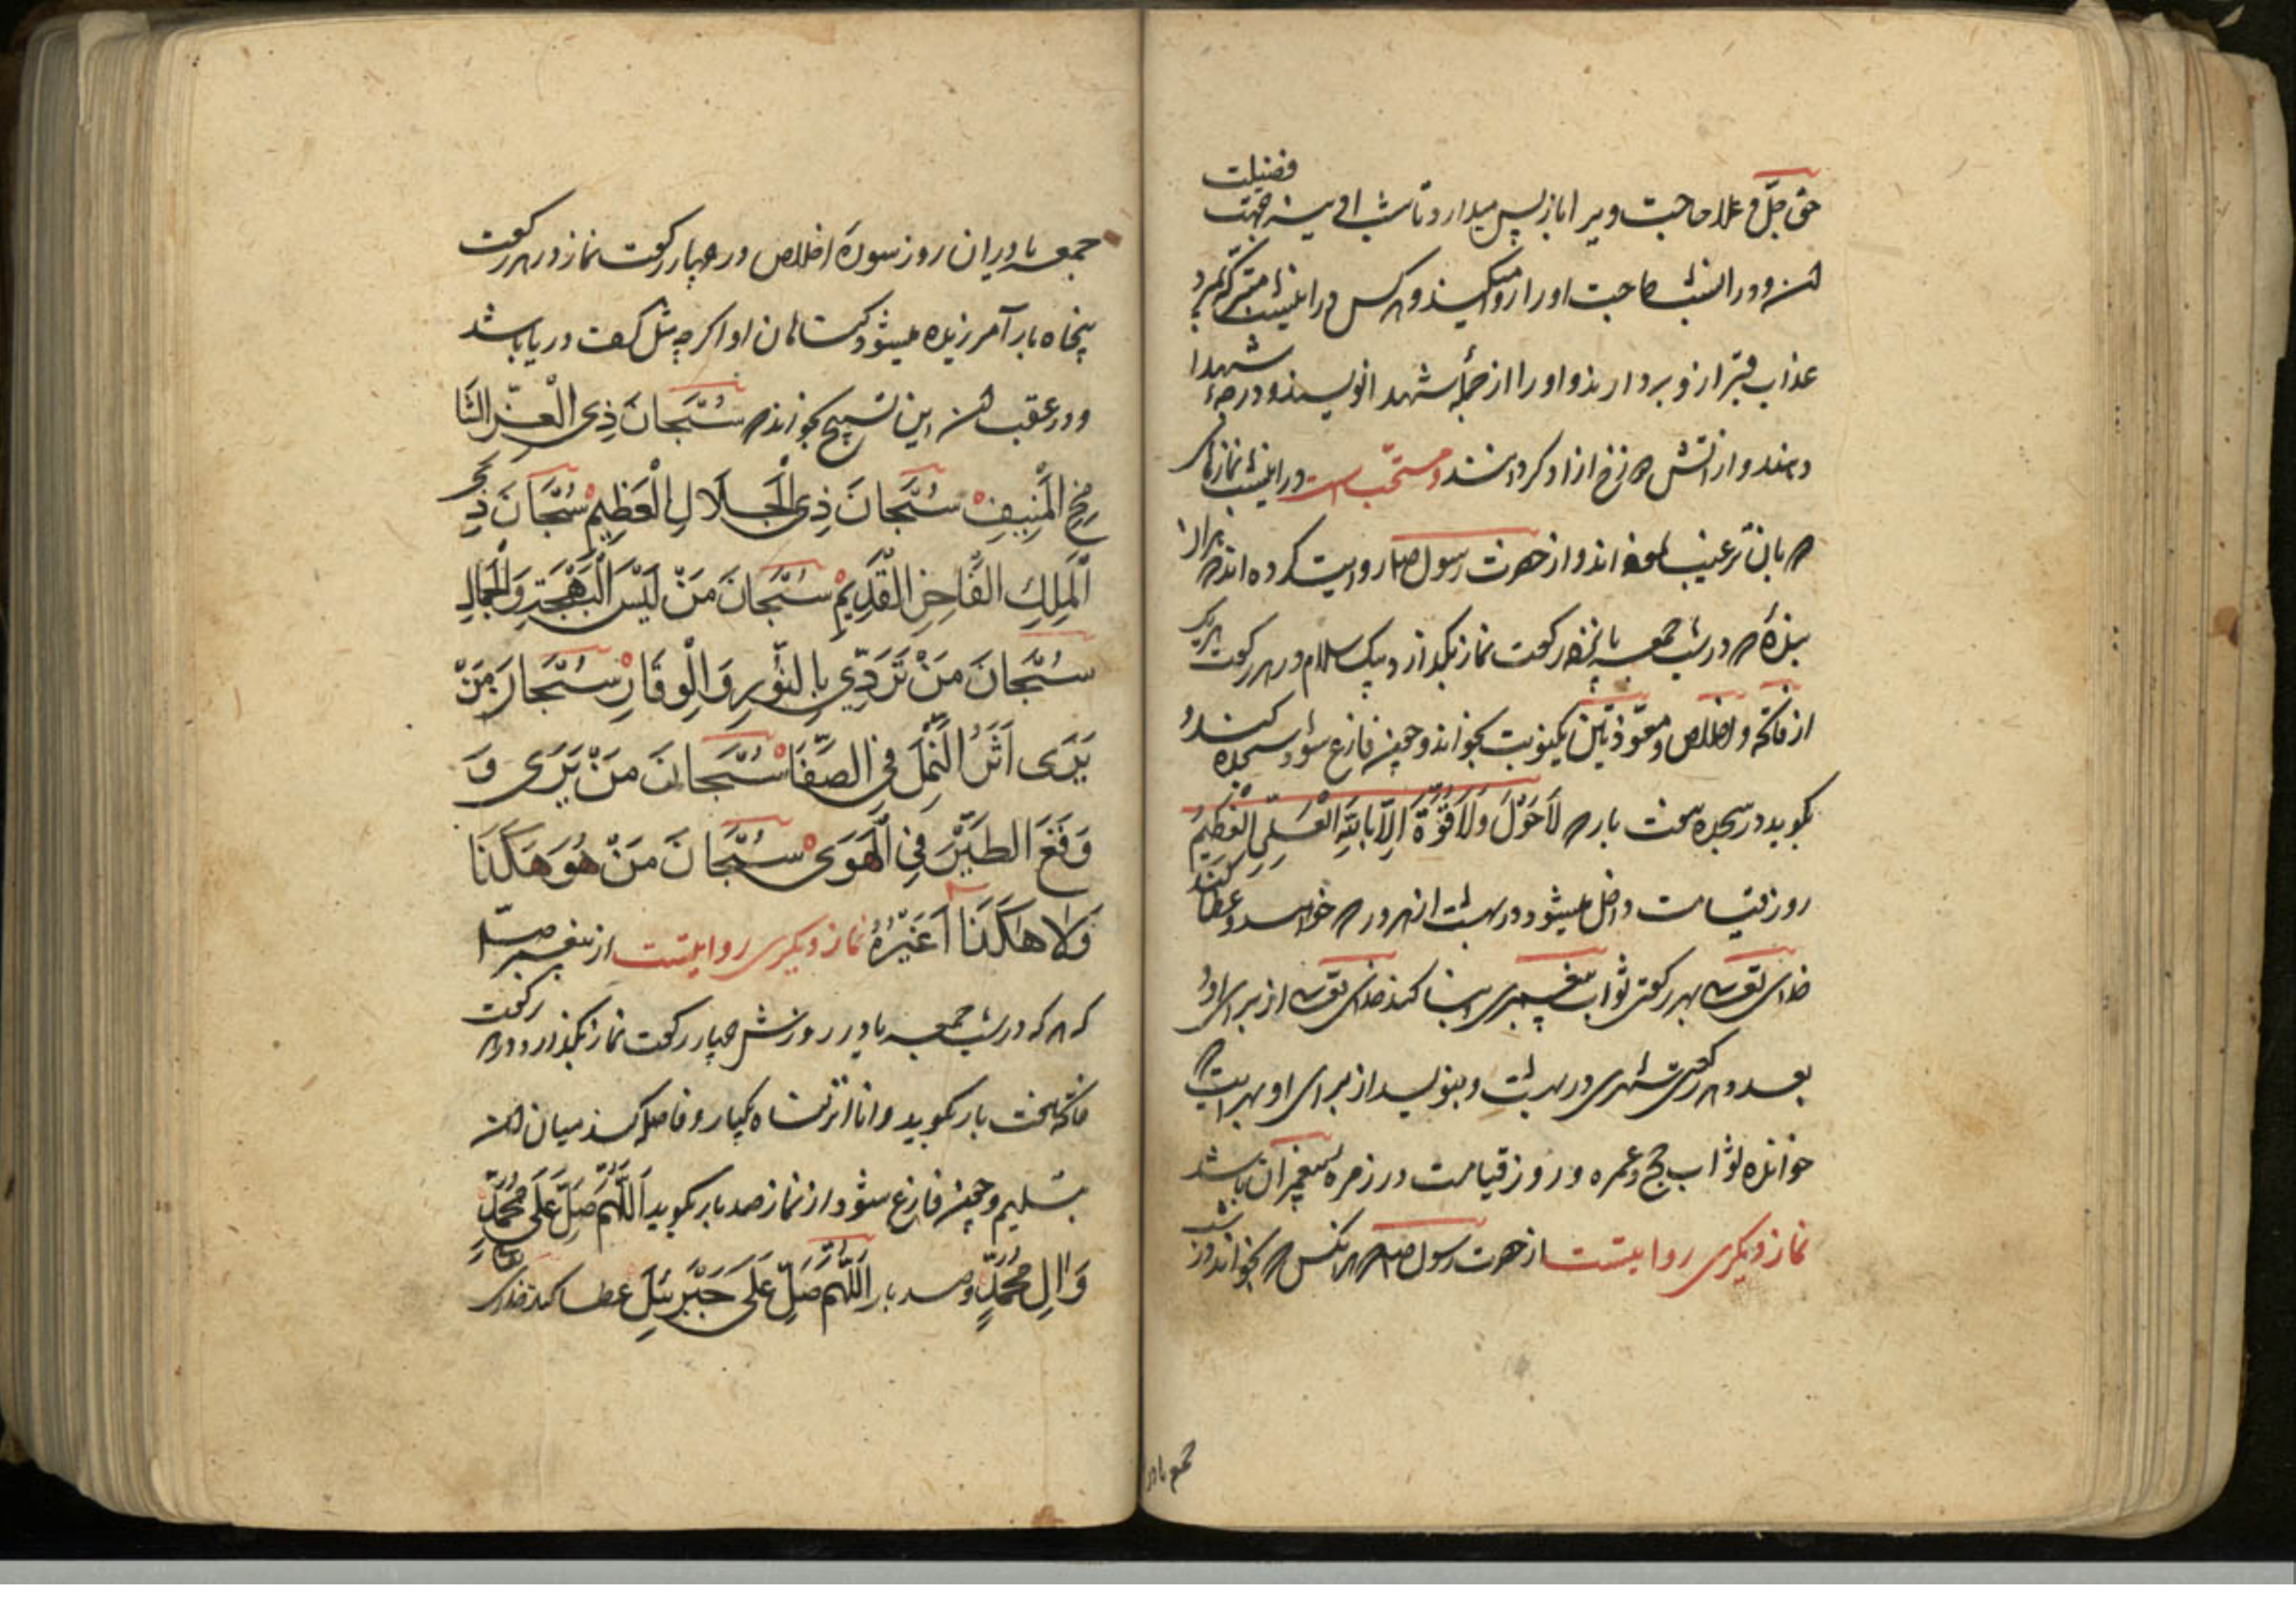 حق جلّ و علا حاجت ویرا باز پس میدارد تا شب ادینه جهت فضیلت
ان و در انشب حاجت او را روا میکند و هر کس در اینشب متبرکه بمیرد
عذاب قبر از و بردارند و او را از جملهٔ شهدا نویسند و درجهٔ شهدا
دهند و از اتش دوزخ ازاد کردانند و مستحبّ است در اینشب نمازهای
که بان ترغیب نموده اند و از حضرت رسول صلم روایت کرده اند که هر ان
بندهٔ که در شب جمعه یا پنجه رکعت نماز بکذارد بیک سلام و در هر رکعت هر یک
از فاتحه و اخلاص و معوّذتین یکنوبت بخواند و چون فارغ شود سجده کند و
بکوید در سجده هفت بار که لَا حَوْلَ وَلَا قُوَّةَ اِلَّا بِاللّٰهِ الْعَلِيِّ الْعَظِيمِ
روز قیامت داخل میشود در بهشت از هر در که خواهد و عطا کند
خدای تعالی بهر رکعتی ثواب پیغمبری و بنا کند خدای تعالی از برای او
بعدد هر رکعتی شهری در بهشت و بنویسد از برای او بهر ایت که
خوانده ثواب حج و عمره و روز قیامت در زمره پیغمبران باشد
نماز دیکری روایتست از حضرت رسول صلم که هر انکس که بخواند در شب
جمعه یا در
جمعه یا در ان روز سورهٔ اخلاص در چهار رکعت نماز در هر رکعت
پنجاه بار آمرزیده میشود و کناهان او اکر چه مثل کف دریا باشد
و در عقب ان این تسبیح بخواند که سُبْحَانَ ذِي الْعِزِّ الشَّا
مِخِ الْمُنِيفِ سُبْحَانَ ذِي الْجَلَالِ الْعَظِيمِ سُبْحَانَ ذِي
الْمُلْكِ الْفَاخِرِ الْقَدِيمِ سُبْحَانَ مَنْ لَبِسَ الْبَهْجَةَ وَالْجَمَالَ
سُبْحَانَ مَنْ تَرَدّي بِالنُّورِ وَالْوِقَارِ سُبْحَانَ مَنْ
يَرَى اَثَرَ النَّمْلِ فِي الصَّفَا سُبْحَانَ مَنْ يَرَى وَ
وَقَعَ الطَّيْرِ فِي الْهَوَى سُبْحَانَ مَنْ هُوَ هَكَذَا
وَلَا هٰكَذَا غَيْرُهُ نماز دیکری روایتست از پیغمبر صلم
که هر که در شب جمعه یا در روزش چهار رکعت نماز بکذارد و در هر رکعت
فاتحه هفت بار بکوید و انا انزلناه یکبار و فاصله کند میان ان
بتسلیم و چون فارغ شود از نماز صد بار بکوید اَللّٰهُمَّ صَلِّ عَلَى مُحَمَّدٍ
وَالِ مُحَمَّدٍ و صد بار اَللّٰهُمَّ صَلِّ عَلَى جَبْرَئِيلَ عطا کند خدای تعالی